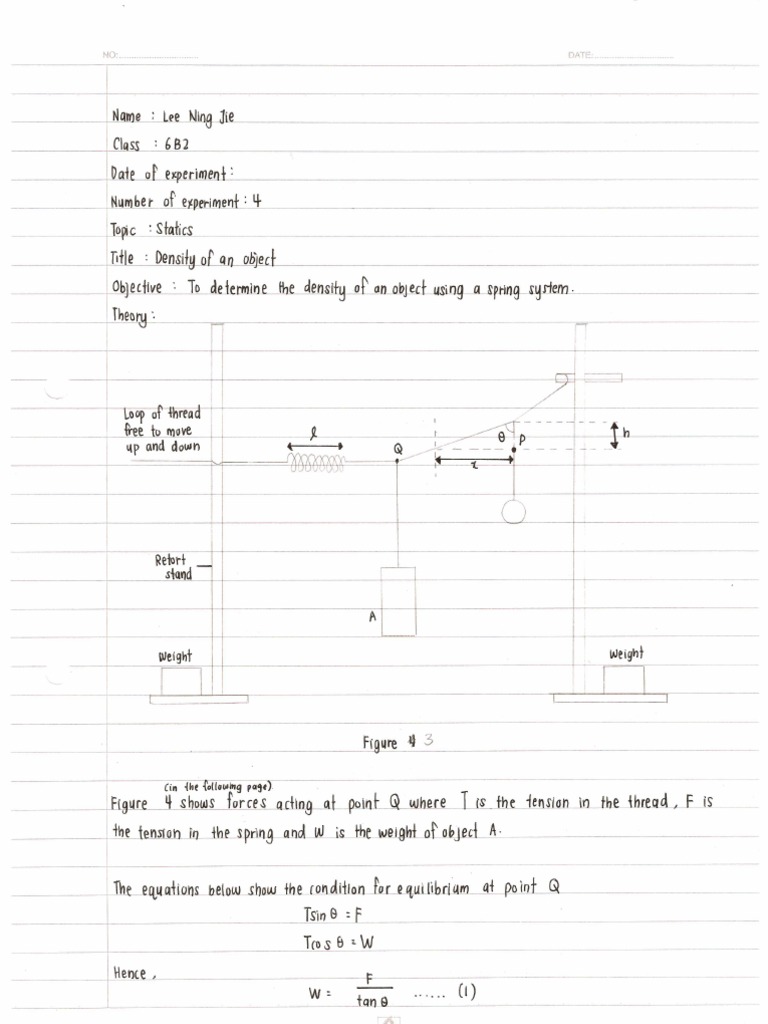 NO:
DATE:
Name : Lee Ning Jie
Class : 6B2
Date of experiment :
Number of experiment : 4
Topic : Statics
Title : Density of an object
Objective : To determine the density of an object using a spring system.
Theory :
Loop of thread
free to move
up and down
l
Q
θ
P
h
x
Retort
stand
A
Weight
Weight
Figure 3
(in the following page)
Figure 4 shows forces acting at point Q where T is the tension in the thread, F is
the tension in the spring and W is the weight of object A.
The equations below show the condition for equilibrium at point Q
Tsin θ = F
Tcos θ = W
Hence,
W = F / tan θ ...... (1)